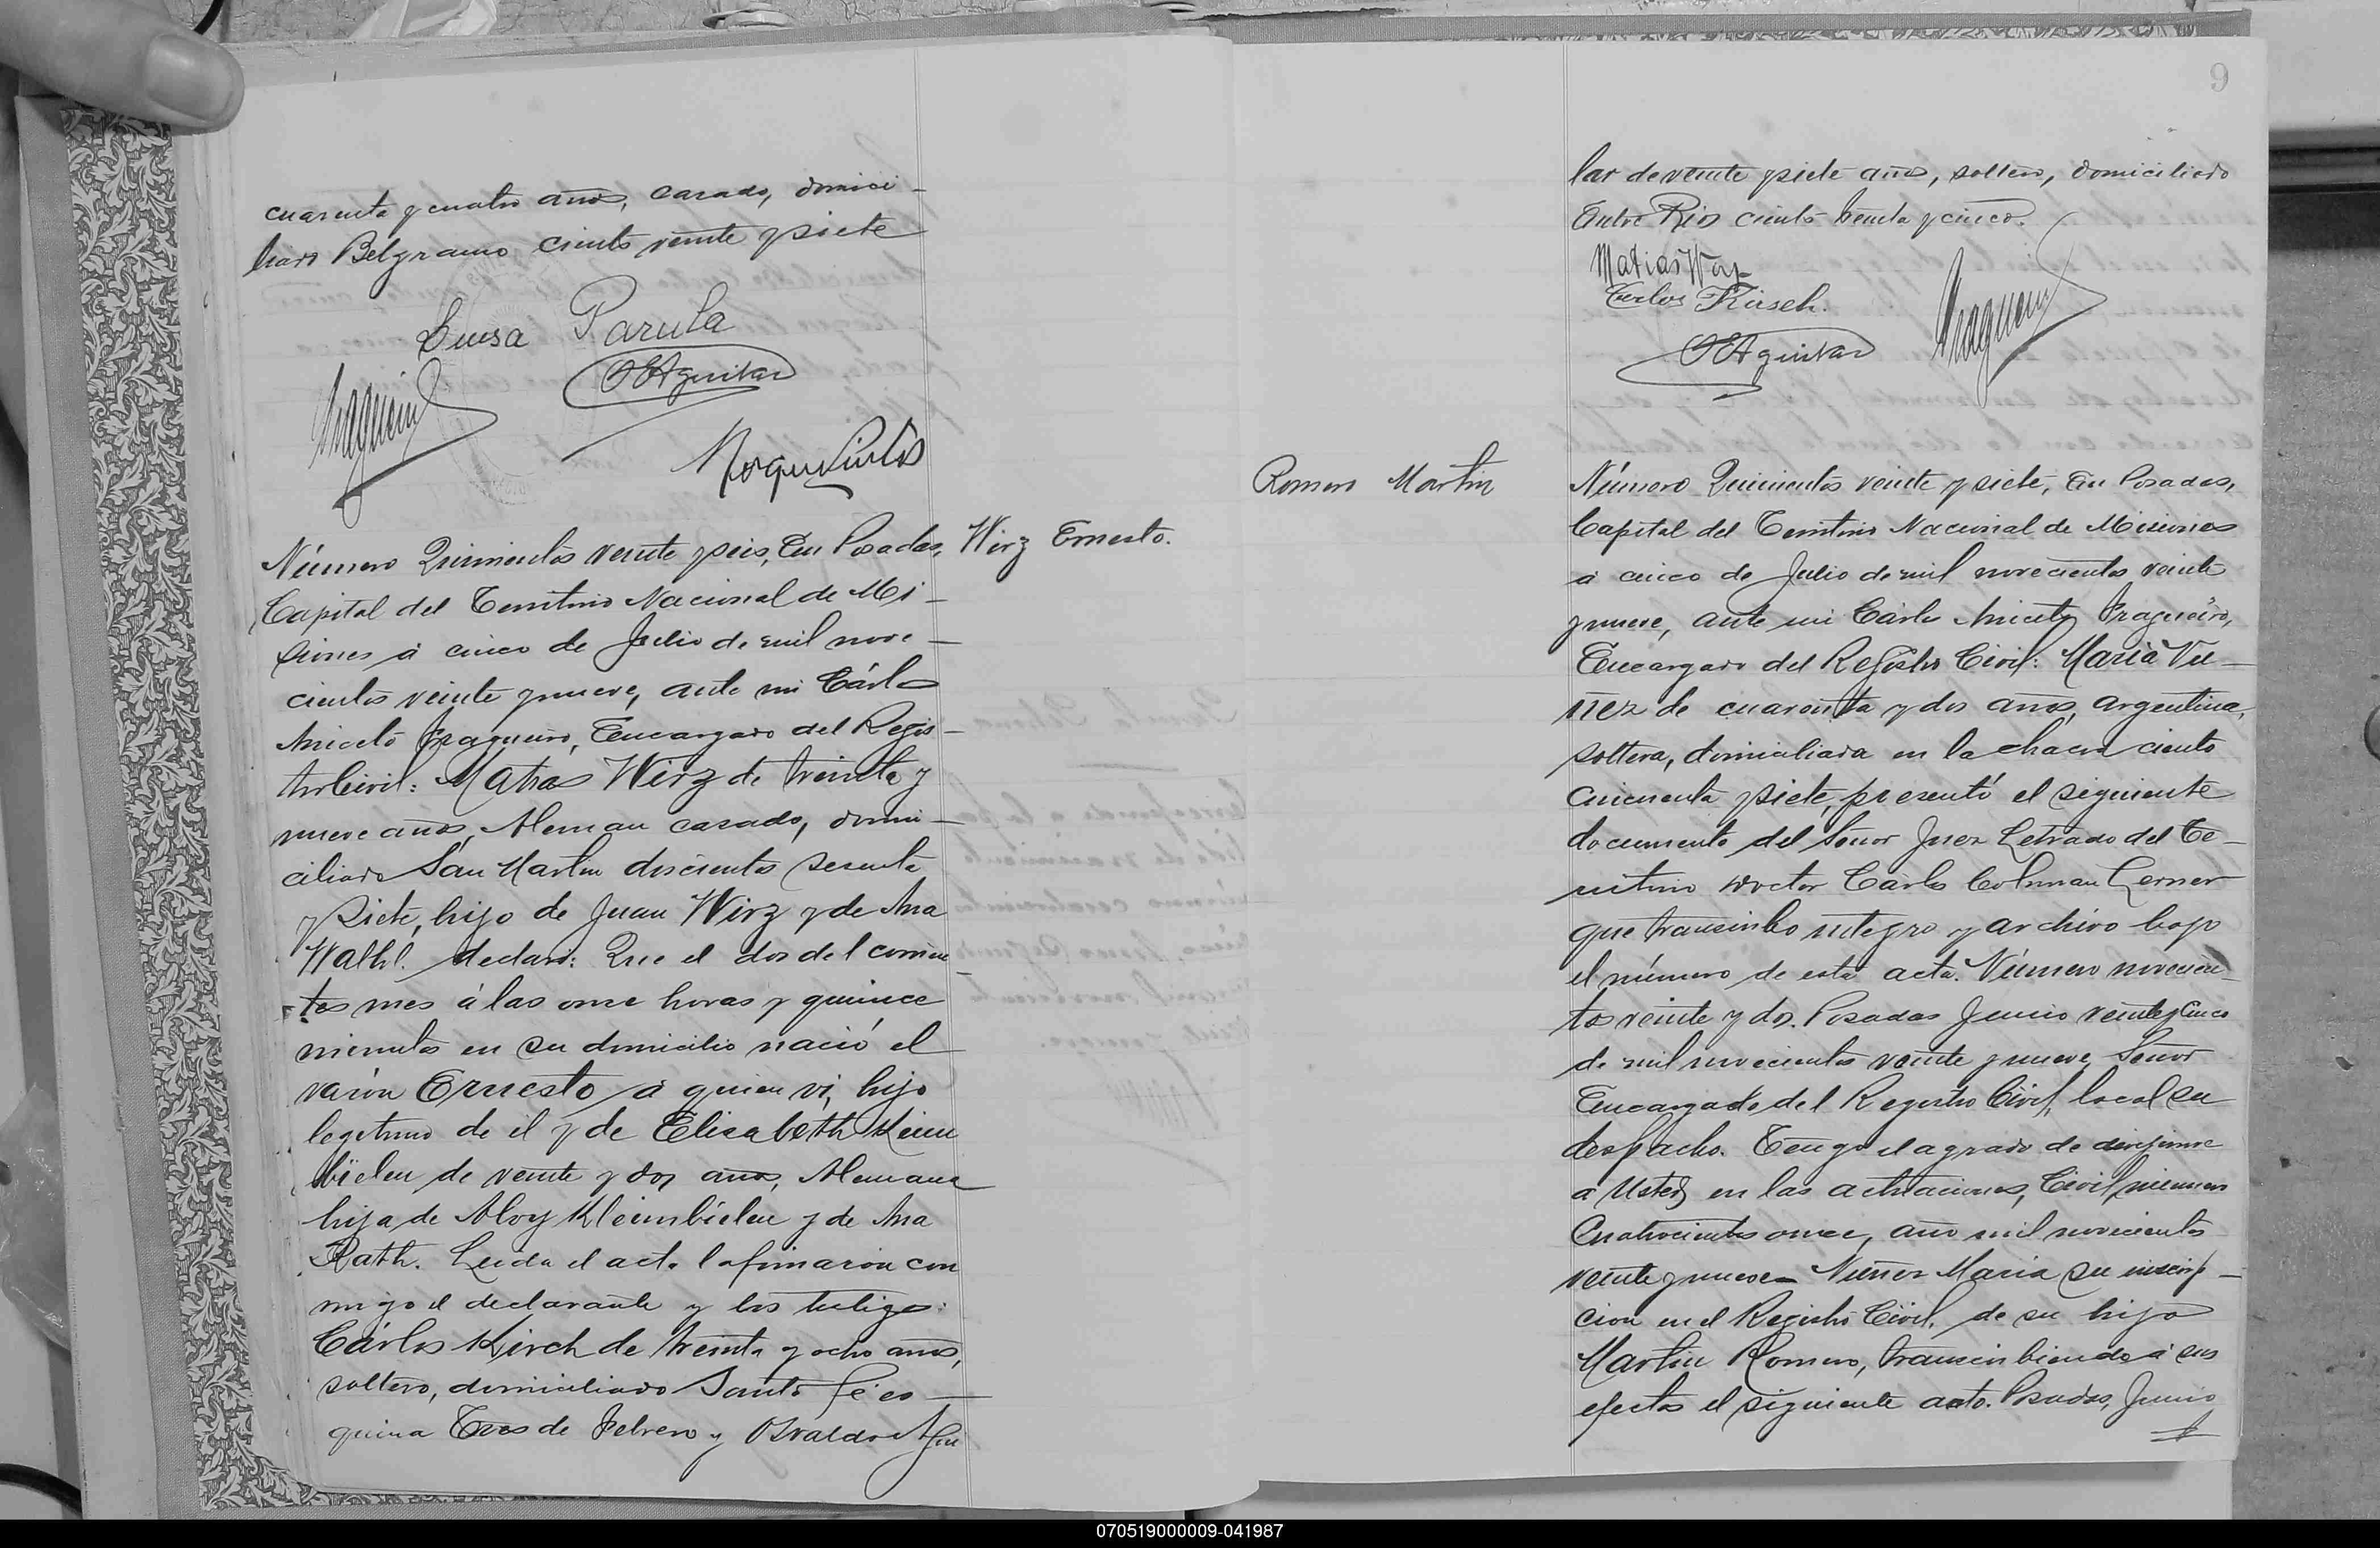 cuarenta y cuatro años, casado, domici-
liado Belgrano ciento veinte y siete
Luisa Parula
OEAguilar
Roque Pintos
Número Quinientos veinte y seis, En Posadas,
Wirz Ernesto.
Capital del Territorio Nacional de Mi-
siones á cinco de Julio de mil nove-
cientos veinte y nueve, ante mi Cárlos
Aniceto Fragueiro, Encargado del Regis-
tro Civil: Matias Wirz de treinta y
nueve años, Aleman casado, domi-
ciliado San Martin doscientos sesenta
y siete, hijo de Juan Wirz y de Ana
Walhl. declaró: Que el dos del corrien-
tes mes á las once horas y quince
minutos en su domicilio nació el
varón Ernesto á quien vi, hijo
legitimo de él y de Elisabeth Klein
bielen de veinte y dos años, Alemana
hija de Aloy Kleinbielen y de Ana
Rath. Leida el acta la firmaron con
migo el declarante y los testigos:
Cárlos Kirch de treinta y ocho años,
soltero, domiciliado Santa Fé es-
quina Tres de Febrero y Osvaldo Agui
9
lar de veinte y siete años, soltero, domiciliado
Entre Rios ciento treinta y cinco.
Matias Wirz
Carlos Kirsch.
OEAguilar
Fragueiro
Romero Martin
Número Quinientos veinte y siete, En Posadas,
Capital del Territorio Nacional de Misiones
á cinco de Julio de mil novecientos veinte
y nueve, ante mi Cárlos Aniceto Fragueiro,
Encargado del Registro Civil: Maria Nu-
ñez de cuarenta y dos años, argentina,
soltera, domiciliada en la chacra ciento
cincuenta y siete, presentó el siguiente
documento del Señor Juez Letrado del Te-
rritorio Doctor Cárlos Colman Lerner
que transcribo integro y archivo bajo
el número de esta acta. Número novecien-
tos veinte y dos. Posadas Junio veinte y cinco
de mil novecientos veinte y nueve, Señor
Encargado del Registro Civil, local su
despacho. Tengo el agrado de dirijirme
a Usted, en las actuaciones, Civil, número
Cuatrocientos once, año mil novecientos
veinte y nueve- Nuñez Maria su inscrip-
cion en el Registro Civil, de su hijo
Martin Romero, transcribiendo á sus
efectos el siguiente auto. Posadas, Junio
070519000009-041987